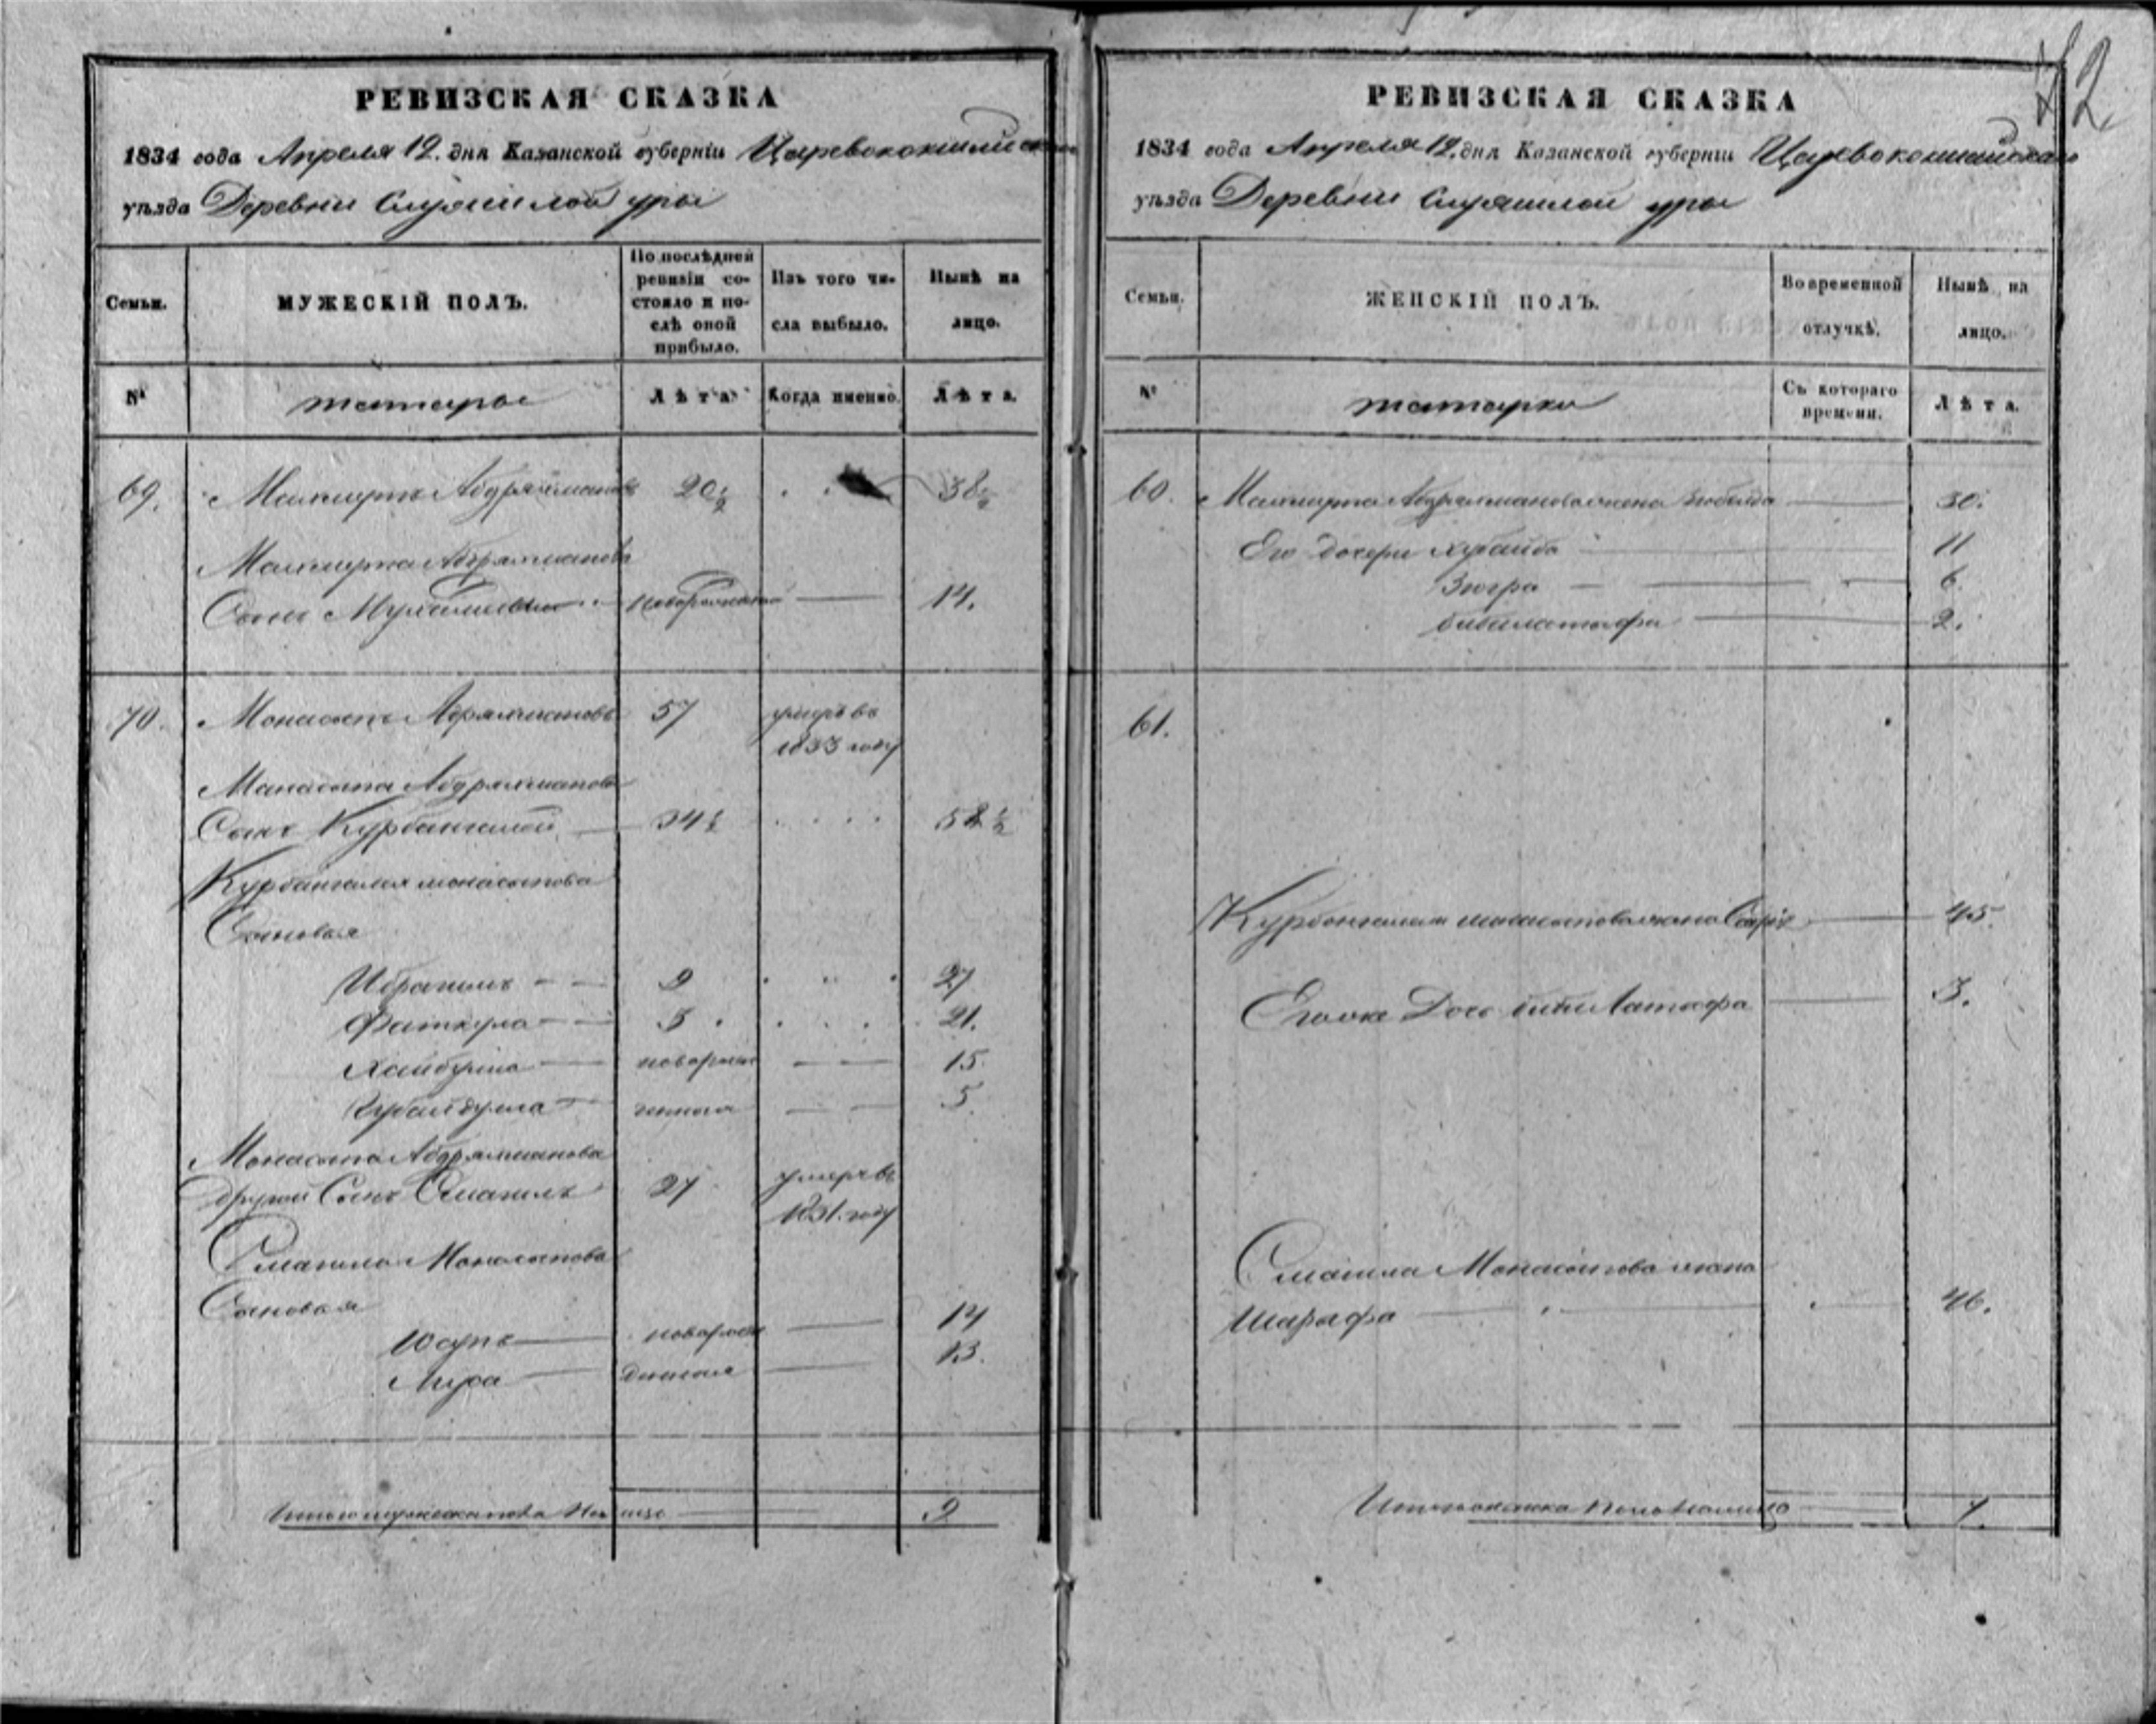 РЕВИЗСКАЯ СКАЗКА
1834 года Апреля 12. дня Казанской губерніи Царевококшайскаго
уѣзда Деревни Служилой уры
Семьи.
МУЖЕСКІЙ ПОЛЪ.
По послѣдней ревизіи состояло и послѣ оной прибыло.
Изъ того числа выбыло.
Нынѣ на лицо.
№
татары
Лѣта
Когда именно.
Лѣта.
69. Абдряхмановъ 20½ 38½
Абдряхманова
Сынъ новорожденной 14.
70. Монасыпъ Абдряхмановъ 57 умеръ въ
1833 году
Манасыпа Абдряхманова
Сынъ Курбангалей 34½ 52½
Курбангалея монасыпова
Сыновья
Ибрагимъ 9 27
Фаткула 3 21.
Хайбулла новорож 15.
Губайдулла денныя 5.
Монасыпа Абдряхманова
другой Сынъ Смагилъ 27 умеръ въ
1831. году
Смагила Монасыпова
Сыновья
Юсупъ новорож 14
Муса денныя 13.
Итого мужеска пола На лицо 9
РЕВИЗСКАЯ СКАЗКА
1834 года Апреля 12. дня Казанской губерніи Царевококшайскаго
уѣзда Деревни Служилой уры
Семьи.
ЖЕНСКІЙ ПОЛЪ.
Во временной отлучкѣ.
Нынѣ на лицо.
№
татарки
Съ котораго времени.
Лѣта.
60. Абдряхманова жена Зюбейда 30.
Его дочери Хубайба 11
Зюгра 6.
бибилатафа 2.
61.
Курбангалея монасыпова жена 45.
Его Дочь биби Латафа 3.
Смагила Монасыпова жена
Шарафа 46.
Итого женска пола На лицо 7.